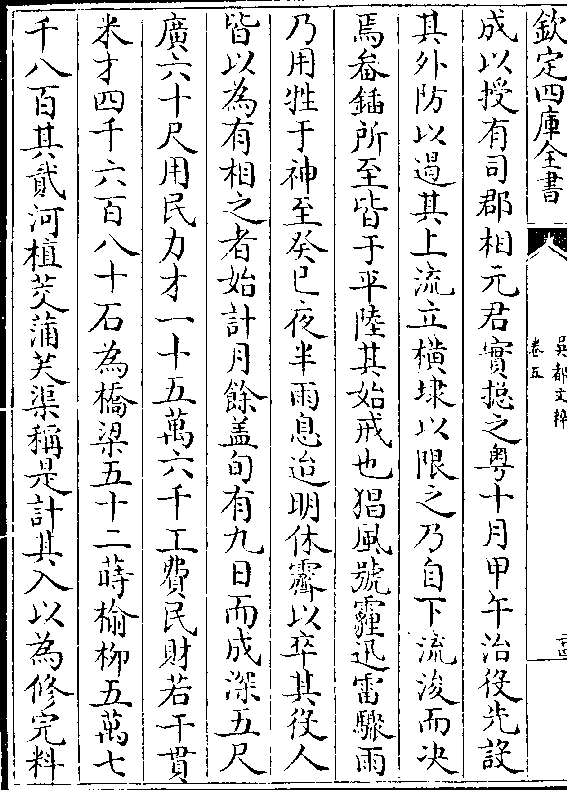 欽定四庫全書
吳都文粹
卷五
成以授有司郡相元君實揔之粤十月甲午治役先設
其外防以遏其上流立横埭以限之乃自下流浚而决
焉畚鍤所至皆于平陸其始戒也猖風號霾迅雷驟雨
乃用牲于神至癸巳夜半雨息迨明休霽以卒其役人
皆以為有相之者始計月餘盖旬有九日而成深五尺
廣六十尺用民力才一十五萬六千工費民財若干貫
米才四千六百八十石為橋梁五十二蒔榆柳五萬七
千八百其貳河植茭蒲芙渠稱是計其入以為修完料